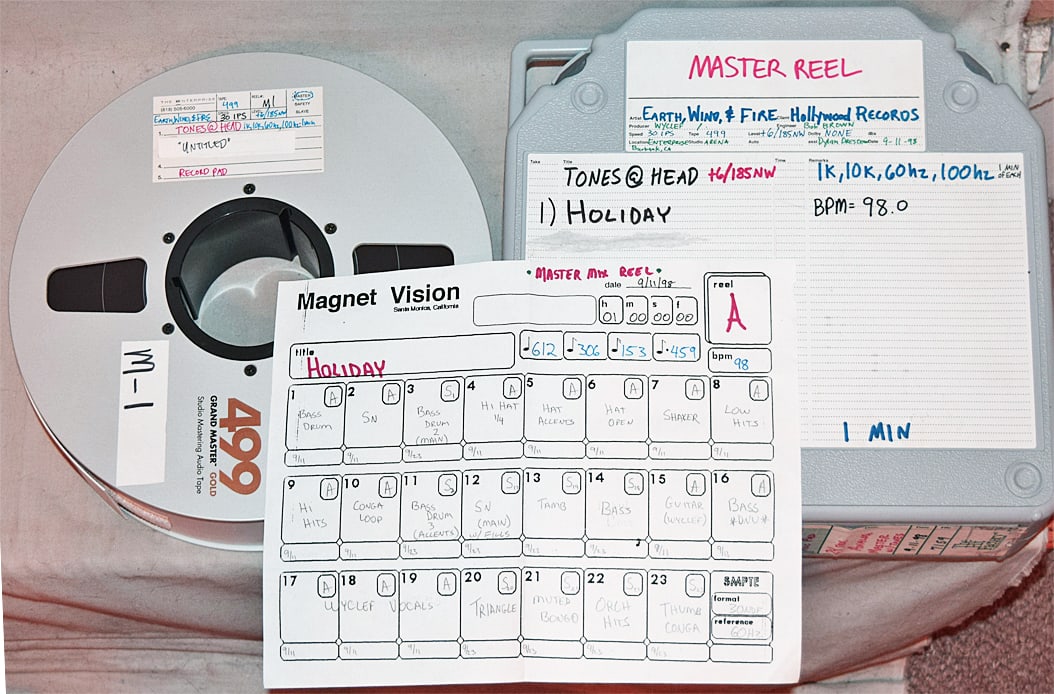 THE ENTERPRISE
(818) 505-6000
TAPE 499
REEL# M1
MASTER
SAFETY
SLAVE
EARTH, WIND, & FIRE
30 IPS
+6/185NW
1. TONES@HEAD 1K,10K,60hz,100hz
"UNTITLED"
4.
5. RECORD PAD
M-1
499
GRAND MASTER™ GOLD
Studio Mastering Audio Tape
MASTER REEL
Artist EARTH, WIND, & FIRE Client Hollywood RECORDS
Producer WYCLEF Engineer Bob BROWN
Speed 30 IPS Tape 499 Level +6/185NW Dolby NONE dbx
Location ENTERPRISE Studio ARENA Auto Asst Dylan Date 9-11-98
Burbank, CA
Take Title Time Remarks
TONES @ HEAD +6/185NW 1K, 10K, 60hz, 100hz 1 MIN OF EACH
1) HOLIDAY BPM= 98.0
1 MIN
• MASTER MIX REEL •
Magnet Vision
Santa Monica, California
date 9/11/98
reel
A
h m s f
01 00 00 00
title
HOLIDAY
♩612 ♩306 ♪153 ♩.459
bpm
98
1 A BASS DRUM 9/11
2 A SN 9/11
3 S BASS DRUM 2 (MAIN) 9/23
4 A HI HAT 1/4 9/11
5 A HAT ACCENTS 9/11
6 A HAT OPEN 9/11
7 A SHAKER 9/11
8 A LOW HITS 9/11
9 A HI HITS 9/11
10 A CONGA LOOP 9/11
11 S BASS DRUM 3 (ACCENTS) 9/23
12 S SN (MAIN) W/ FILLS 9/23
13 S TAMB
14 S BASS 9/23
15 A GUITAR (WYCLEF) 9/11
16 A BASS 9/11
17 A 18 A 19 A WYCLEF VOCALS 9/11 9/11 9/11
20 S TRIANGLE 9/23
21 S MUTED BONGO 9/23
22 S ORCH HITS 9/23
23 S THUMB CONGA 9/23
SMPTE
format
30NDF
reference
60Hz